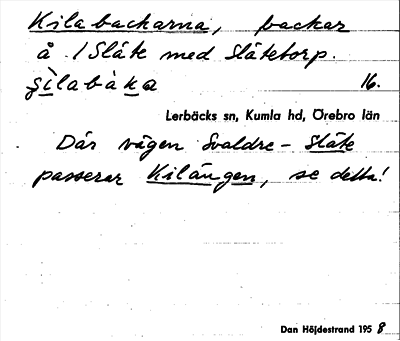 Kilabackarna, backar
å 1 Släte med Slätetorp.
s̀ìlabàka 16.
Lerbäcks sn, Kumla hd, Örebro län
Där vägen Svaldre - Släte
passerar Kilängen, se detta!
Dan Höjdestrand 1958